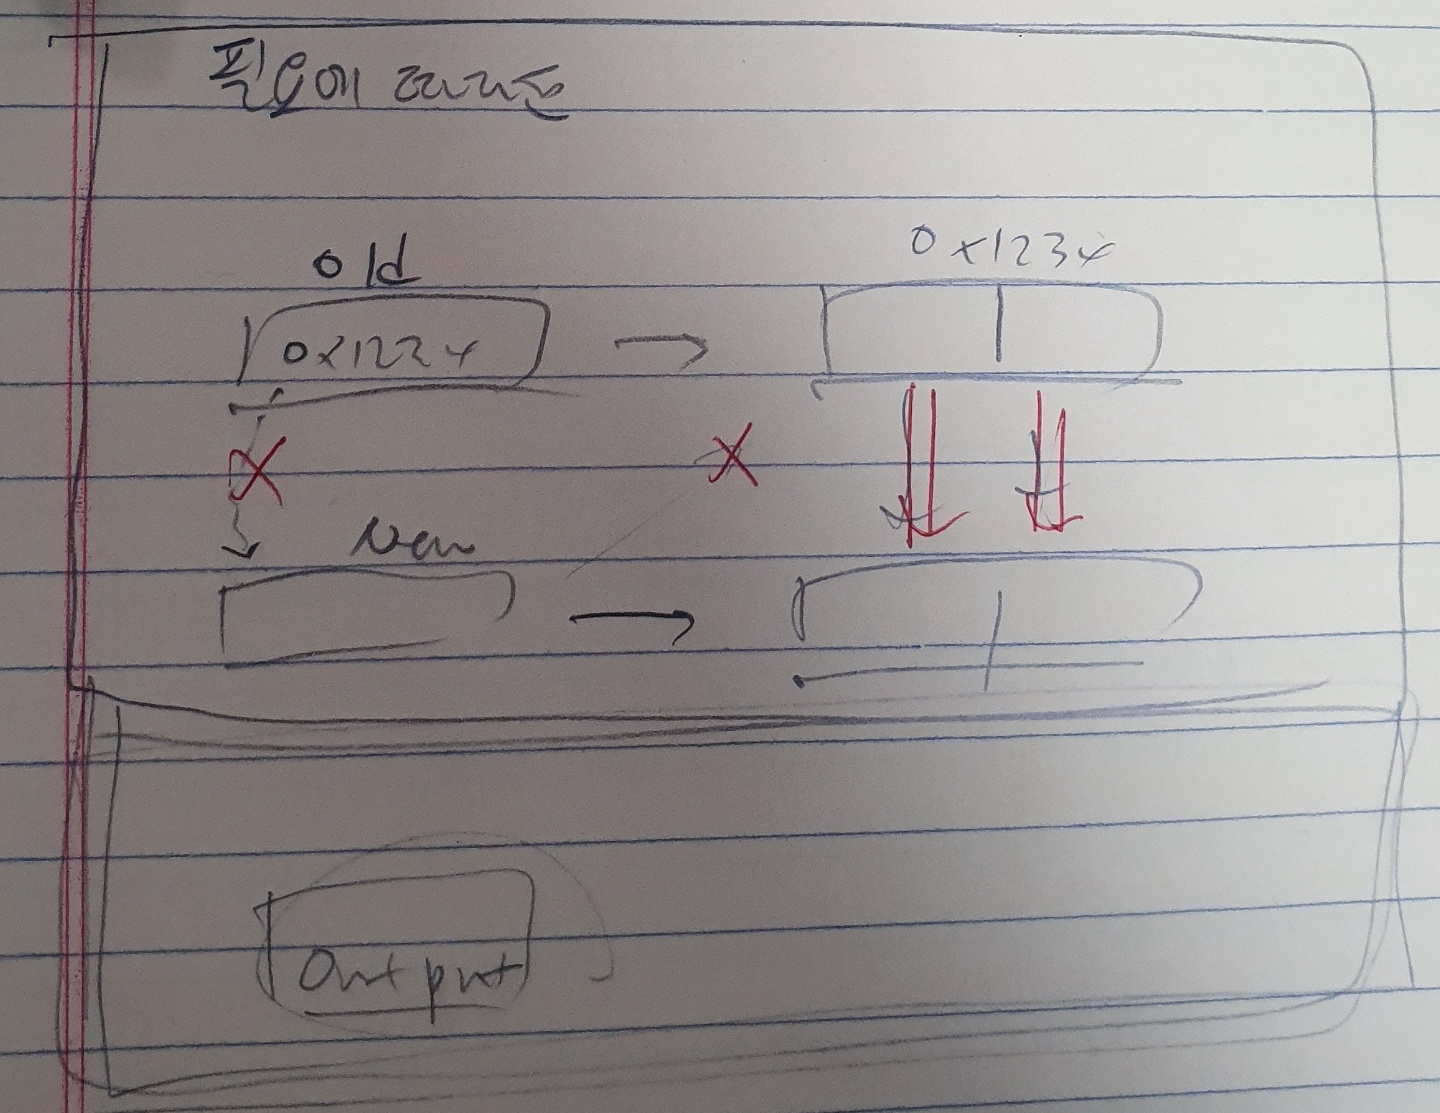 필요에
old
0x1234
0x1224
New
Output